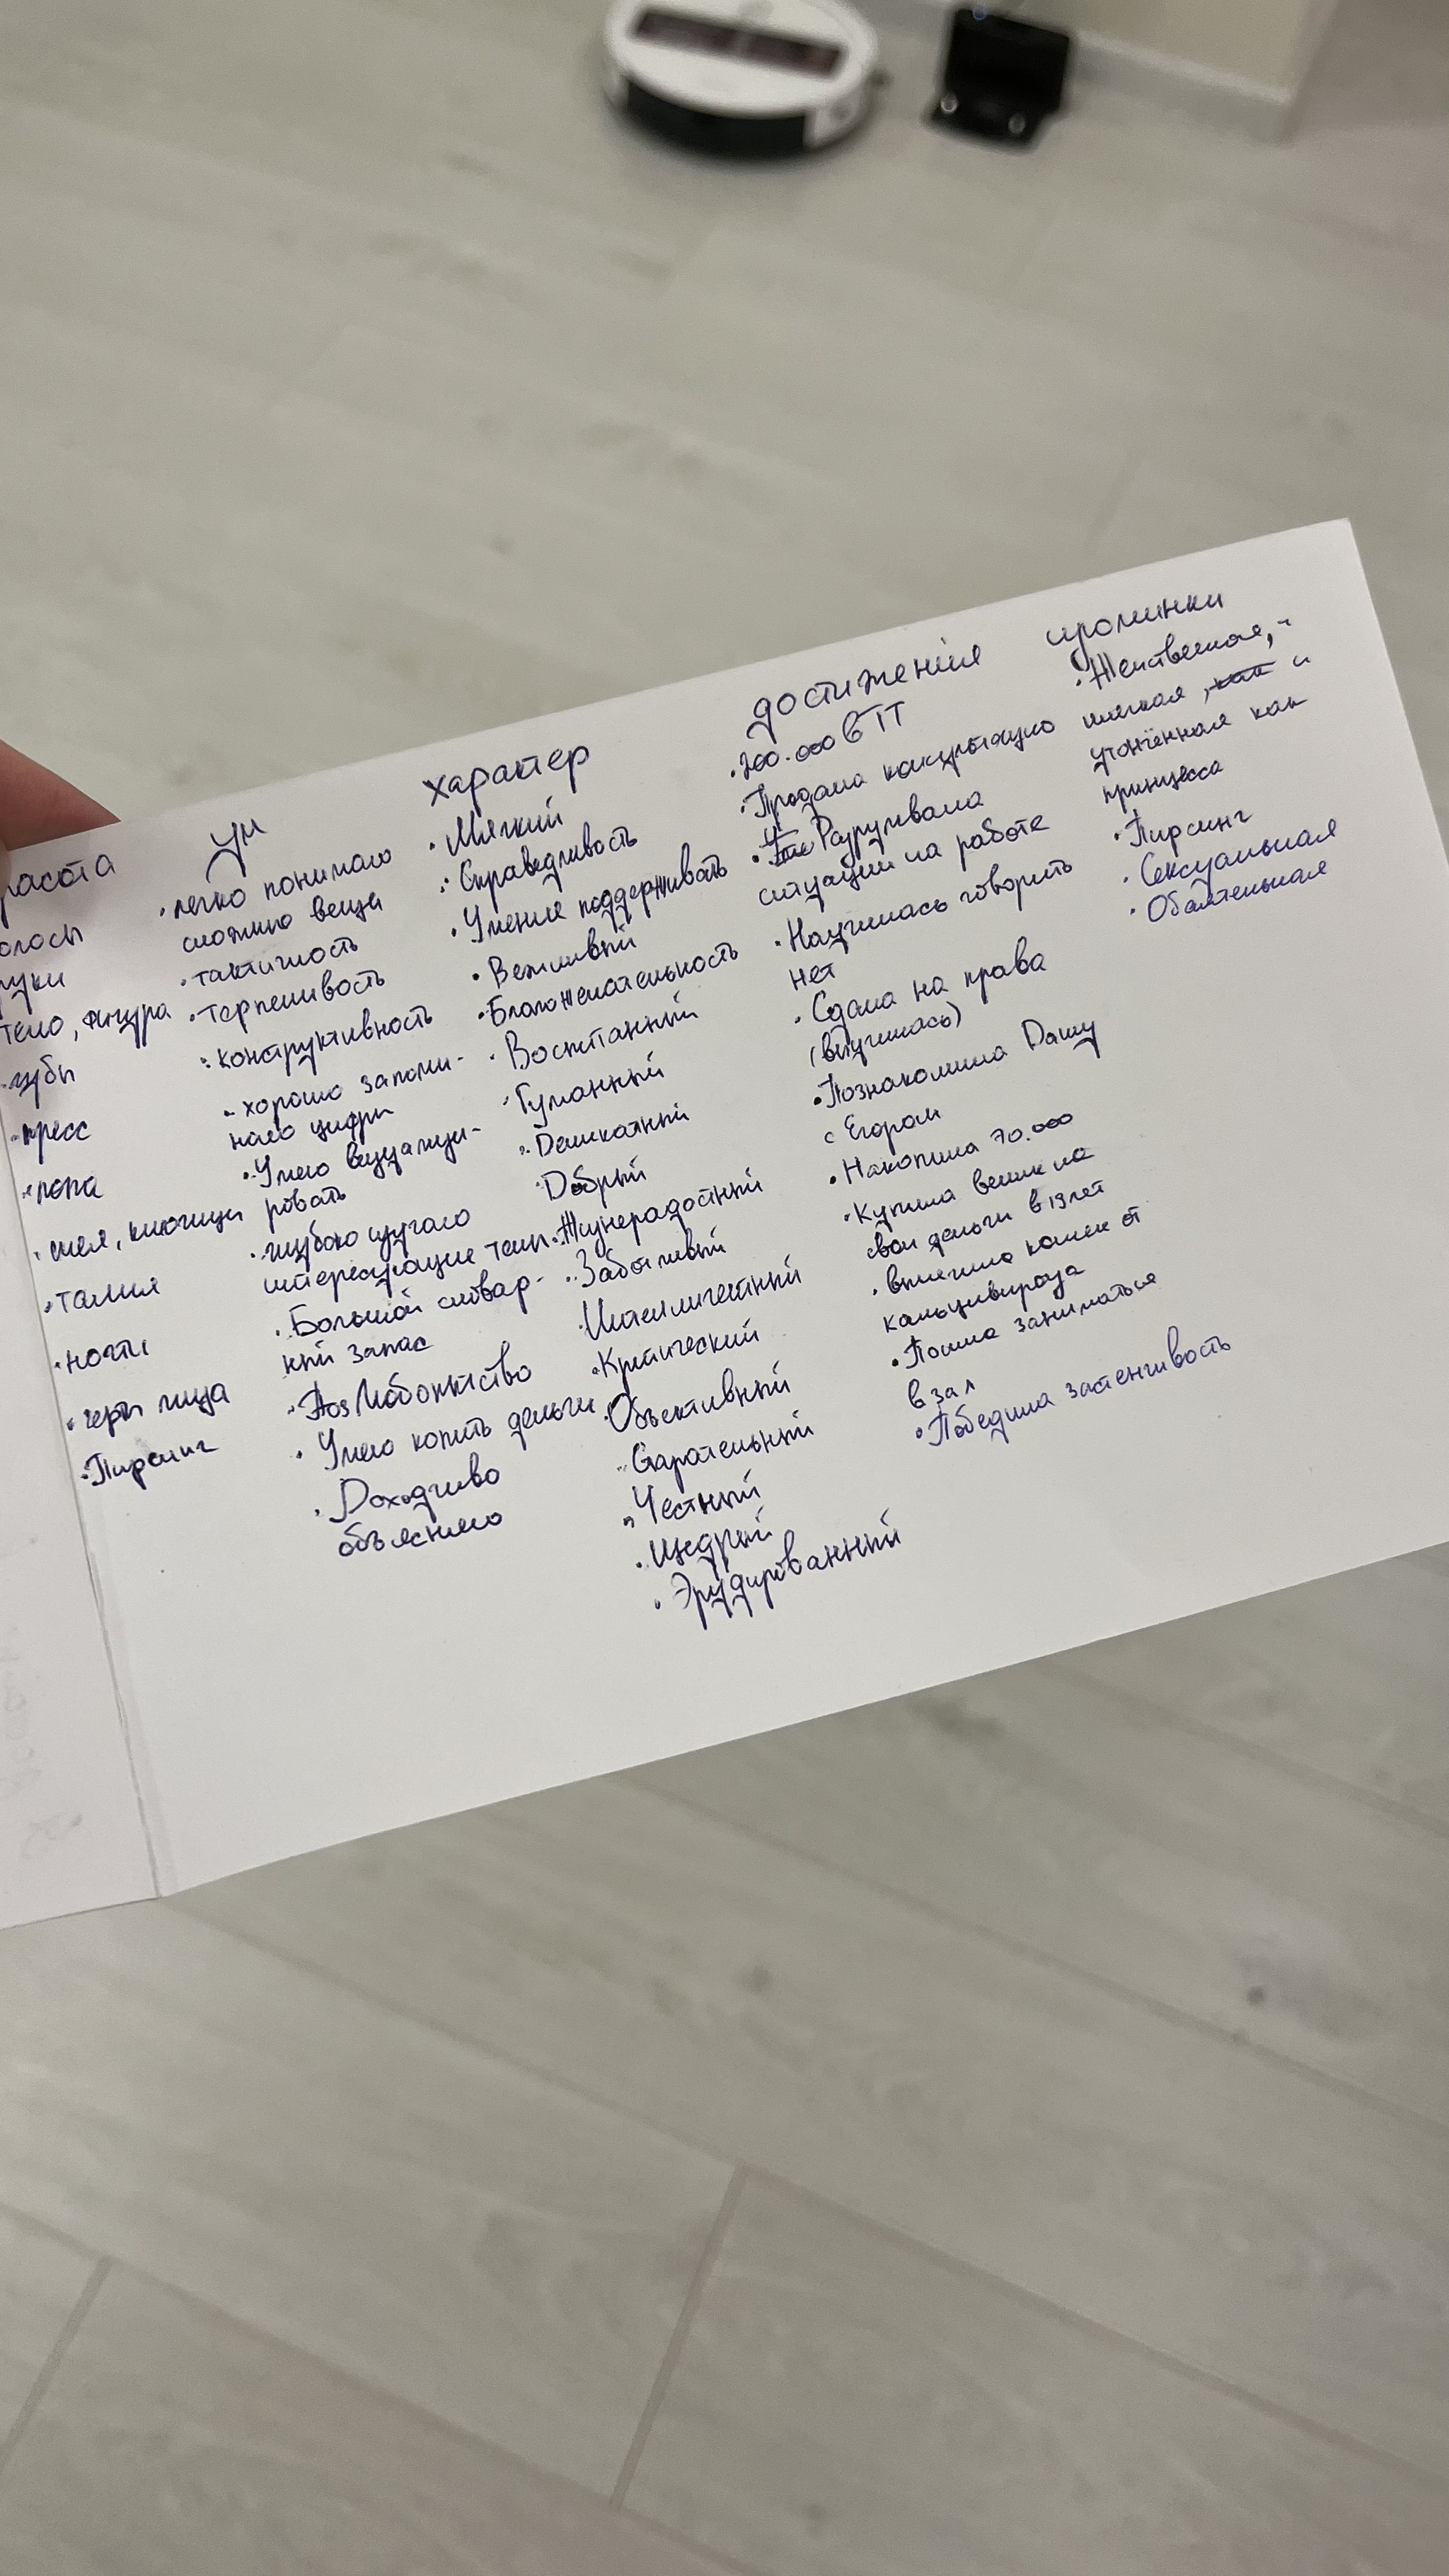 расота
олосы
руки
тело, фигура
губы
пресс
попа
шея, ключицы
талия
ногти
черты лица
Пирсинг
Ум
легко понимаю
сложные вещи
тактичность
терпеливость
конструктивность
хорошо запоми-
наю цифры
Умею визуализи-
ровать
глубоко изучаю
интересующие темы
Большой словар-
ный запас
Любопытство
Умею копить деньги
Доходчиво
объясняю
характер
Мягкий
Справедливость
Умение поддерживать
Вежливый
Благожелательность
Воспитанный
Гуманный
Деликатный
Добрый
Жизнерадостный
Заботливый
Интеллигентный
Критический
Объективный
Старательный
Честный
Щедрый
Эрудированный
достижения
200.000 в ТТ
Продала консультацию
Разруливала
ситуации на работе
Научилась говорить
нет
Сдала на права
(выучилась)
Познакомила Дашу
с Егором
Накопила 70.000
Купила велик на
свои деньги в 19 лет
вылечила кошек от
кальцивироза
Пошла заниматься
в зал
Победила застенчивость
изюминки
Женственная,
мягкая, как и
утончённая как
принцесса
Пирсинг
Сексуальная
Обаятельная